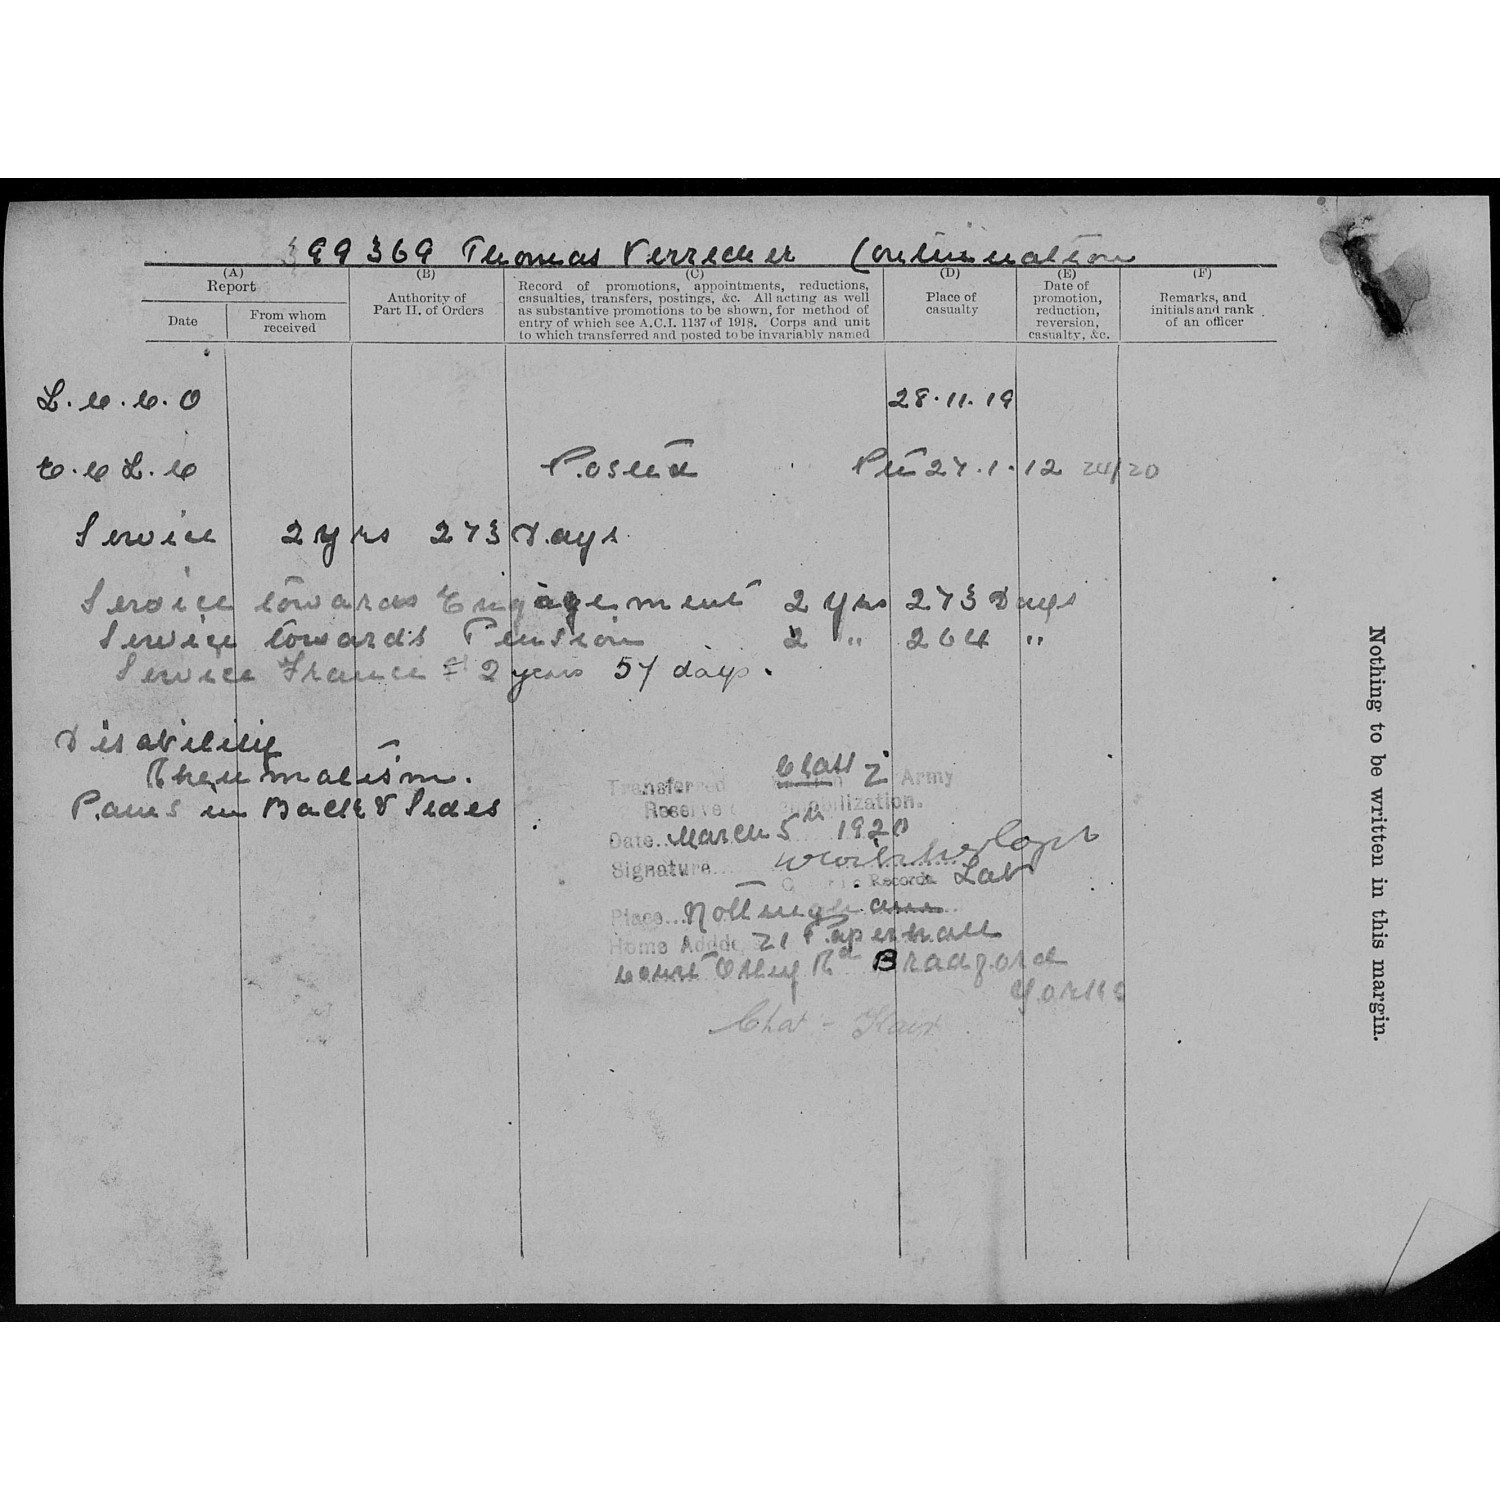 399369 Thomas Verrecher Continuation
(A) (B) (C) (D) (E) (F)
Report
Date
From whom received
Authority of Part II. of Orders
Record of promotions, appointments, reductions,
casualties, transfers, postings, &c. All acting as well
as substantive promotions to be shown, for method of
entry of which see A.C.I. 1137 of 1918. Corps and unit
to which transferred and posted to be invariably named
Place of casualty
Date of promotion, reduction, reversion, casualty, &c.
Remarks, and initials and rank of an officer
28.11.19
Posted 27.1.12 24/20
Service 2 yrs 273 Days
Service towards Engagement 2 yrs 273 Days
Service towards Pension 2 " 264 "
Service France = 2 years 57 days.
Disability
Rheumatism.
Pains in Back & Sides
Transferred Class Z Army
Reserve Demobilization.
Date March 5th 1920
Signature Capt
Records Lab
Place Nottingham
Home Address 21 Paperhall
Court Otley Rd Bradford
Yorks
Char - Fair
Nothing to be written in this margin.